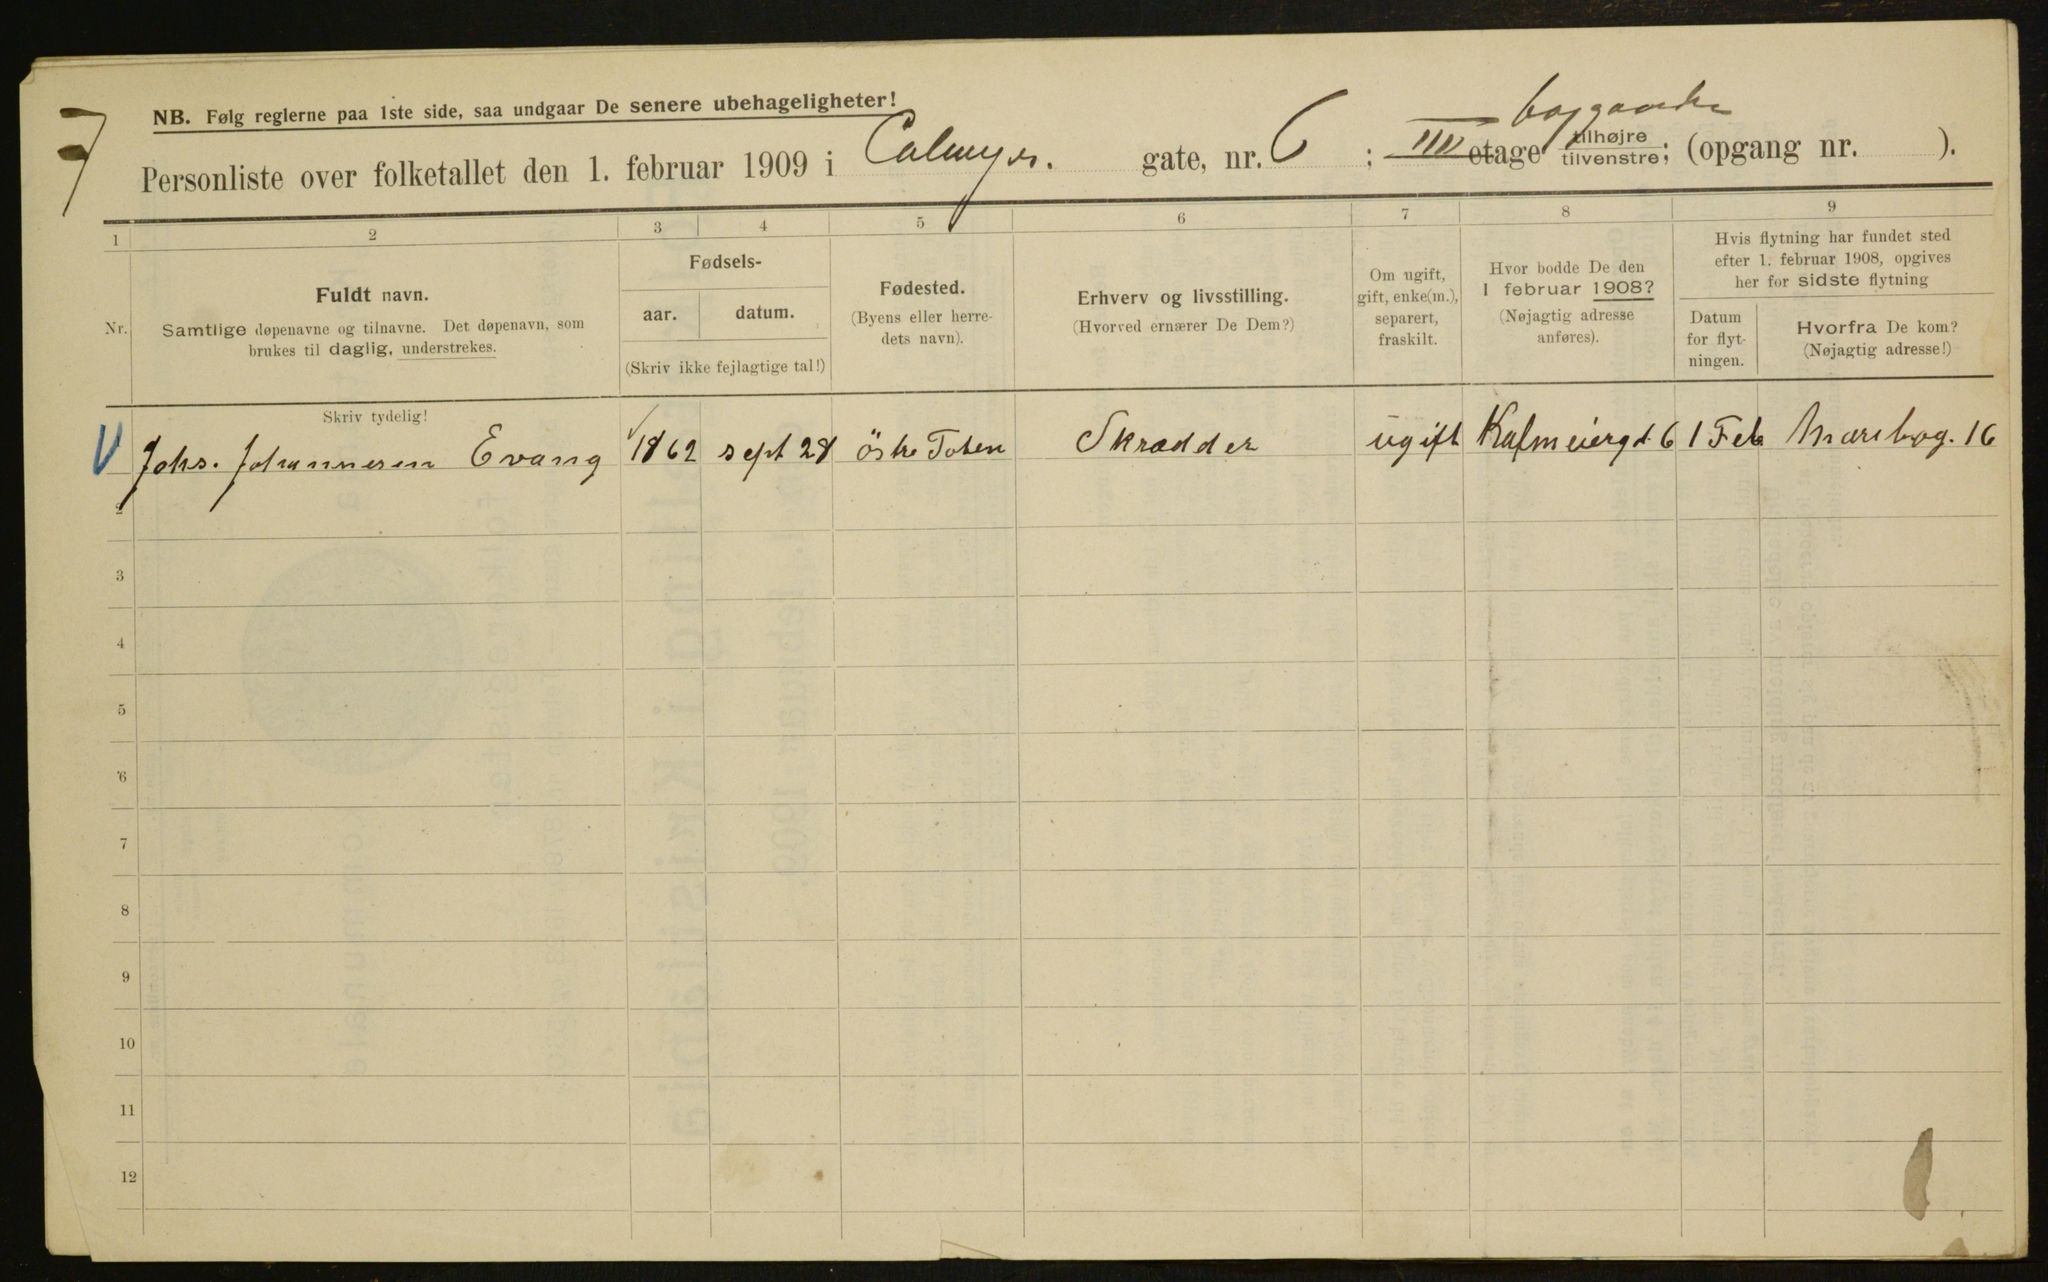 NB. Følg reglerne paa 1ste side, saa undgaar De senere ubehageligheter!
Personliste over folketallet den 1. februar 1909 i Calmeyers. gate, nr. 6 ; IIII etage tilhøjre tilvenstre; (opgang nr. ).
1 2 3 4 5 6 7 8 9
Nr.
Fuldt navn.
Samtlige døpenavne og tilnavne. Det døpenavn, som
brukes til daglig, understrekes.
Skriv tydelig!
Fødsels-
aar. datum.
(Skriv ikke fejlagtige tal!)
Fødested.
(Byens eller herre-
dets navn).
Erhverv og livsstilling.
(Hvorved ernærer De Dem?)
Om ugift,
gift, enke(m.),
separert,
fraskilt.
Hvor bodde De den
1 februar 1908?
(Nøjagtig adresse
anføres).
Hvis flytning har fundet sted
efter 1. februar 1908, opgives
her for sidste flytning
Datum
for flyt-
ningen.
Hvorfra De kom?
(Nøjagtig adresse!)
Johs. Johannesen Evang 1862 sept 28 östre Toten Skrædder ugift Kalmeiergd. 6 1 Feb 16
2
3
4
5
6
7
8
9
10
11
12